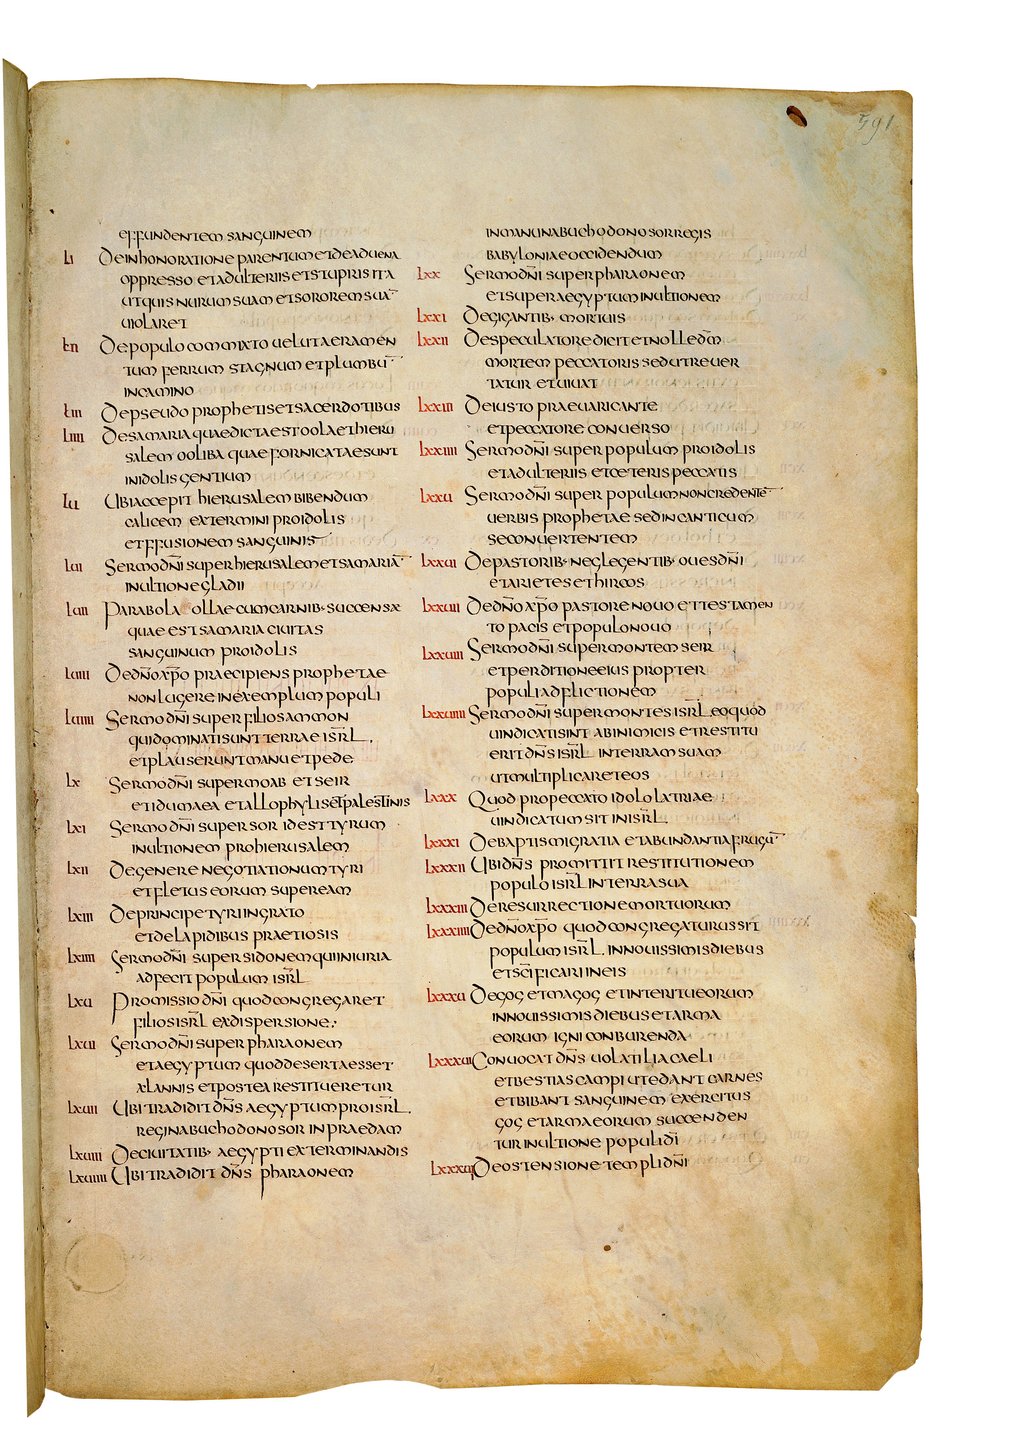 591
effundentem sanguinem
li De inhonoratione parentum et de aduena
oppresso et adulteriis et stupris ita
ut quis nurum suam et sororem suā
uiolaret
lii De populo commixto uelut aeramen
tum ferrum stagnum et plumbū
in camino
liii De pseudo prophetis et sacerdotibus
liiii De samaria quae dicta est oola et hieru
salem ooliba quae fornicatae sunt
in idolis gentium
lu Ubi accepit hierusalem bibendum
calicem extermini pro idolis
et effusionem sanguinis
lui Sermo dn̄i super hierusalem et samariā
in ultione gladii
luii Parabola ollae cum carnib· succensae
quae est samaria ciuitas
sanguinum pro idolis
luiii De dn̄o xp̄o praecipiens prophetae
non lugere in exemplum populi
luiiii Sermo dn̄i super filios ammon
qui dominati sunt terrae isrl̄.
et plauserunt manu et pede
lx Sermo dn̄i super moab et seir
et idumaea et allophyli sēt palestinis
lxi Sermo dn̄i super sor id est tyrum
in ultionem pro hierusalem
lxii De genere negotiationum tyri
et fletus eorum super eam
lxiii De principe tyri ingrato
et de lapidibus praetiosis
lxiiii Sermo dn̄i super sidonem qui iniuria
adfecit populum isrl̄
lxu Promissio dn̄i quod congregaret
filios isrl̄ ex dispersione;
lxui Sermo dn̄i super pharaonem
et aegyptum quod deserta esset
xl annis et postea restitueretur
lxuii Ubi tradidit dn̄s aegyptum pro isrl̄.
regi nabuchodonosor in praedam
lxuiii De ciuitatib· aegypti exterminandis
lxuiiii Ubi tradidit dn̄s pharaonem
in manu nabuchodonosor regis
babyloniae occidendum
lxx Sermo dn̄i super pharaonem
et super aegyptum in ultionem
lxxi De gigantib· mortuis
lxxii De speculatore dicit et nolle dm̄
mortem peccatoris sed ut reuer
tatur et uiuat
lxxiii De iusto praeuaricante
et peccatore conuerso
lxxiiii Sermo dn̄i super populum pro idolis
et adulteriis et ceteris peccatis
lxxu Sermo dn̄i super populum non credente
uerbis prophetae sed in canticum
se conuertentem
lxxui De pastorib· neglegentib· oues dn̄i
et arietes et hircos
lxxuii De dn̄o xp̄o pastore nouo et testamen
to pacis et populo nouo
lxxuiii Sermo dn̄i super montem seir
et perditione eius propter
populi adflictionem
lxxuiiii Sermo dn̄i super montes isrl̄ eo quod
uindicati sint ab inimicis et restitu
erit dn̄s isrl̄ in terram suam
ut multiplicaret eos
lxxx Quod pro peccato idololatriae
uindicatum sit in isrl̄.
lxxxi De baptismi gratia et abundantia frugū
lxxxii Ubi dn̄s promittit restitutionem
populo isrl̄ in terra sua
lxxxiii De resurrectione mortuorum
lxxxiiii De dn̄o xp̄o quod congregaturus sit
populum isrl̄. in nouissimis diebus
et sc̄ificari in eis
lxxxu De gog et magog et interitu eorum
in nouissimis diebus et arma
eorum igni conburenda
lxxxui Conuocat dn̄s uolatilia caeli
et bestias campi ut edant carnes
et bibant sanguinem exercitus
gog et arma eorum succenden
tur in ultione populi dī
lxxxuii De ostensione templi dn̄i